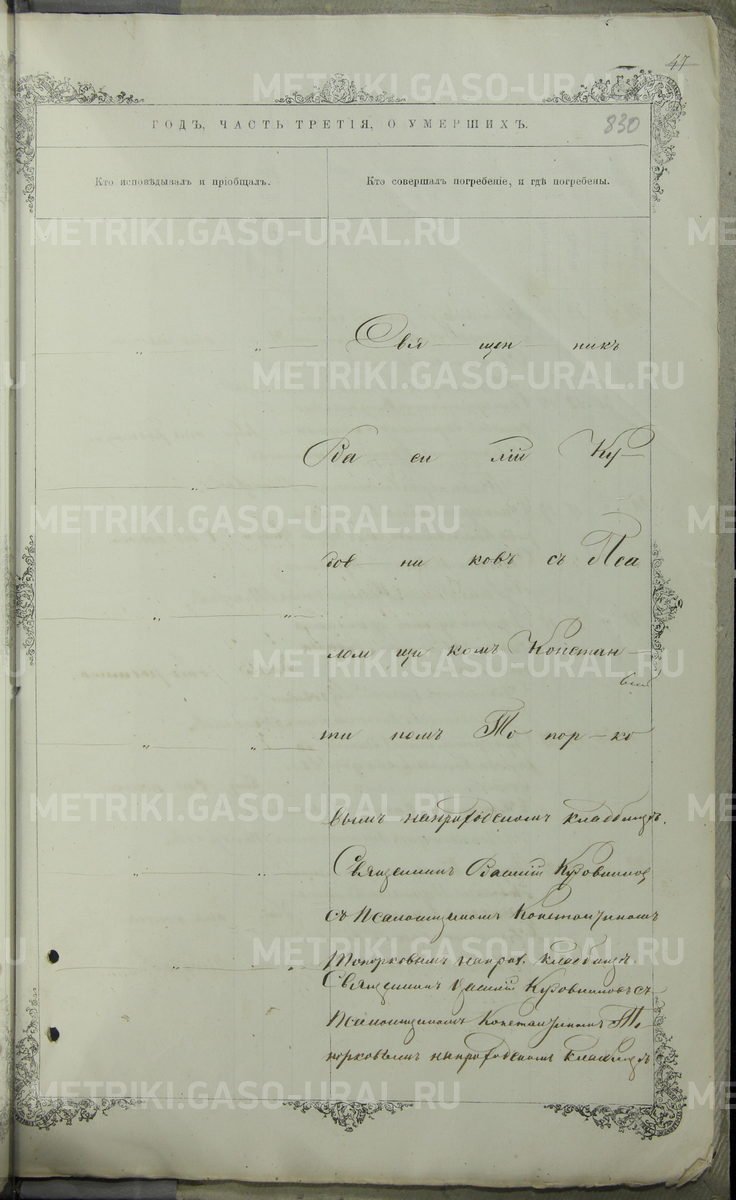 47
ГОДЪ, ЧАСТЬ ТРЕТІЯ, О УМЕРШИХЪ.
830
Кто исповѣдывалъ и пріобщалъ.
Кто совершалъ погребеніе, и гдѣ погребены.
METRIKI.GASO-URAL.RU
Свя — щен — никъ
Ва си лій Ку—
дов ни ковъ съ Пса
лом щи комъ Констан—
ти номъ То пор—ко
вымъ на приходскомъ кладбищѣ.
Священникъ Василій Кудовниковъ
съ Псаломщикомъ Константиномъ
Топорковымъ на прох. кладбищѣ.
Священникъ Василій Кудовниковъ съ
Псаломщикомъ Константиномъ То
порковымъ на приходскомъ кладбищѣ